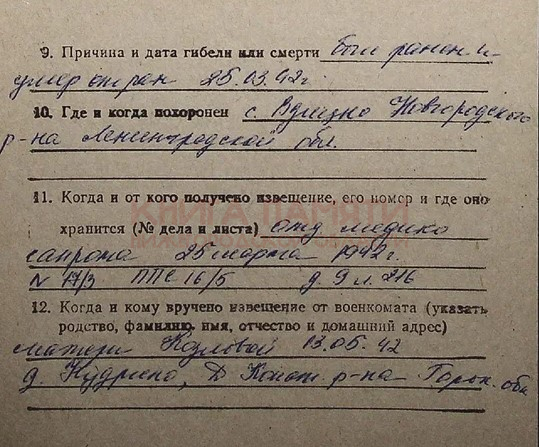 9. Причина и дата гибели или смерти был ранен и
умер от ран 25.03.42г.
10. Где и когда похоронен с. Вдицко Новгородского
р-на Ленинградской обл.
11. Когда и от кого получено извещение, его номер и где оно
хранится (№ дела и листа) отд медико
санрота 25 марта 1942г.
N 17/3 ППС 16/5 д. 9 л. 216
12. Когда и кому вручено извещение от военкомата (указать
родство, фамилию, имя, отчество и домашний адрес)
матери Козловой 13.05.42
д. Кудрино, Д Конст. р-на Горьк. обл
КНИГА ПАМЯТИ